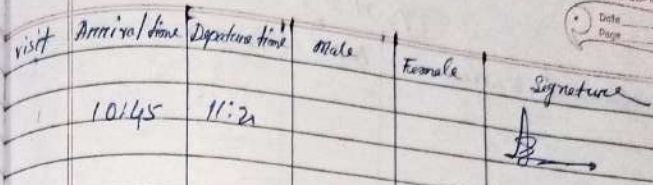 Date
Page
visit Arrival time Departure time Male Female Signature
10:45 11:21